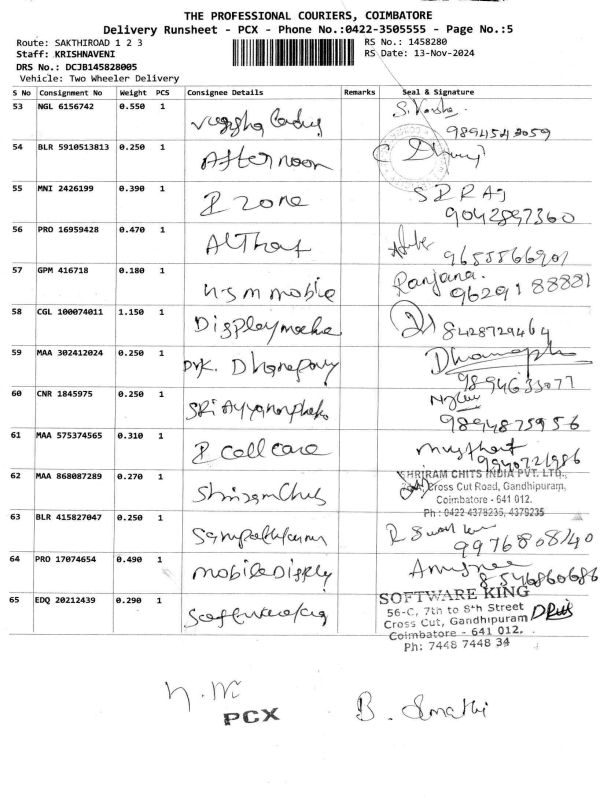 THE PROFESSIONAL COURIERS, COIMBATORE
Delivery Runsheet - PCX - Phone No.:0422-3505555 - Page No.:5
Route: SAKTHIROAD 1 2 3
RS No.: 1458280
Staff: KRISHNAVENI
RS Date: 13-Nov-2024
DRS No.: DCJB145828005
Vehicle: Two Wheeler Delivery
S No Consignment No Weight PCS Consignee Details Remarks Seal & Signature
53 NGL 6156742 0.550 1
9894543059
54 BLR 5910513813 0.250 1 Afternoon
55 MNI 2426199 0.390 1 I zone S D R AJ
9042897360
56 PRO 16959428 0.470 1 AlThaf
57 GPM 416718 0.180 1 nsm mobile Ranjana.
9629188881
58 CGL 100074011 1.150 1 8428729464
59 MAA 302412024 0.250 1
9894633077
60 CNR 1845975 0.250 1
9894875956
61 MAA 575374565 0.310 1 I cell care
9940721986
62 MAA 868087289 0.270 1 SHRIRAM CHITS INDIA PVT. LTD.,
Cross Cut Road, Gandhipuram,
Coimbatore - 641 012.
Ph : 0422 4379236, 4379235
63 BLR 415827047 0.250 1
9976808140
64 PRO 17074654 0.490 1 mobile Display
8546860686
65 EDQ 20212439 0.290 1 SOFTWARE KING
56-C, 7th to 8th Street
Cross Cut, Gandhipuram
Coimbatore - 641 012.
Ph: 7448 7448 34
PCX